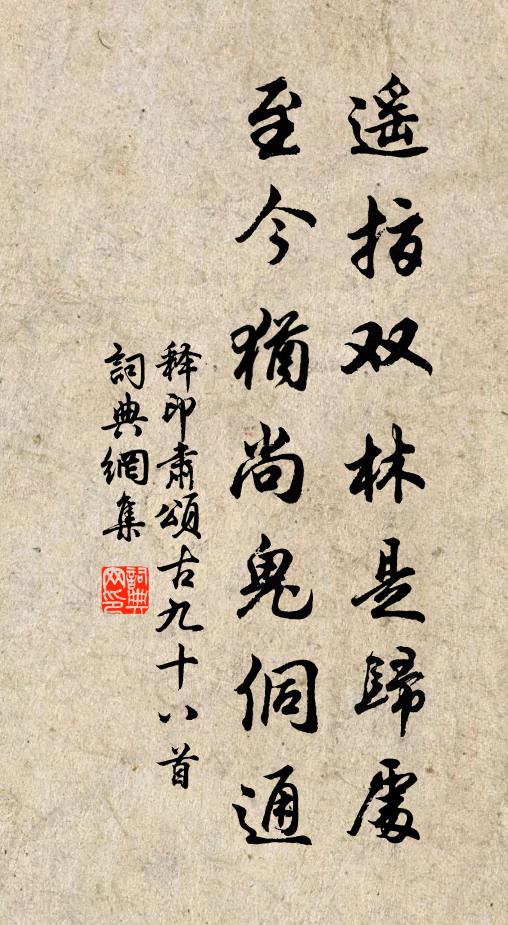 遥指双林是歸處
至今猶尚鬼侗通
释印肅頌古九十八首
詞典網集
詞典網印